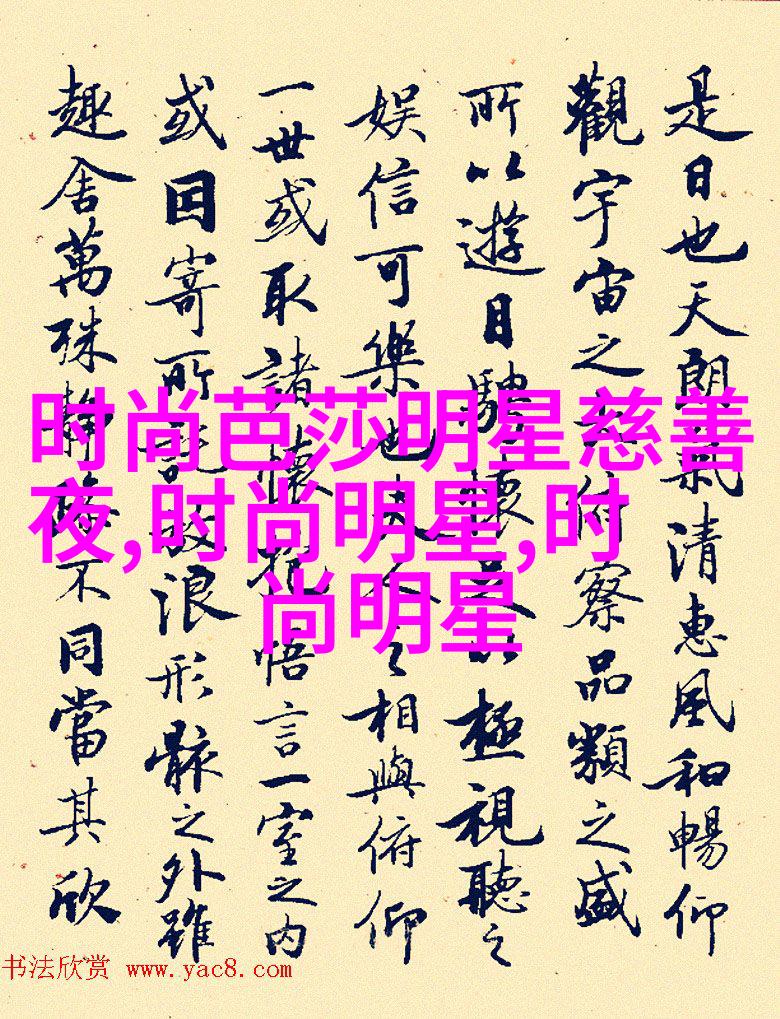 是日也天朗氣清惠風和暢仰
觀宇宙之大俯察品類之盛
所以遊目騁懷足以極視聽之
娱信可樂也夫人之相與俯仰
一世或取諸懷抱悟言一室之内
或因寄所託放浪形骸之外雖
趣舍萬殊静躁不同當其欣
时尚芭莎明星慈善
夜,时尚明星,时
尚明星
书法欣赏 www.yac8.com